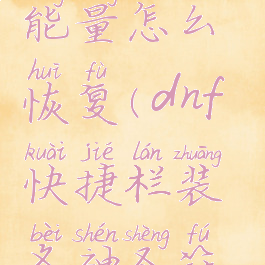 能量怎么
huī fù
恢复(dnf
kuài jié lán zhuāng
快捷栏装
bèi shén shèng fú
备神圣符